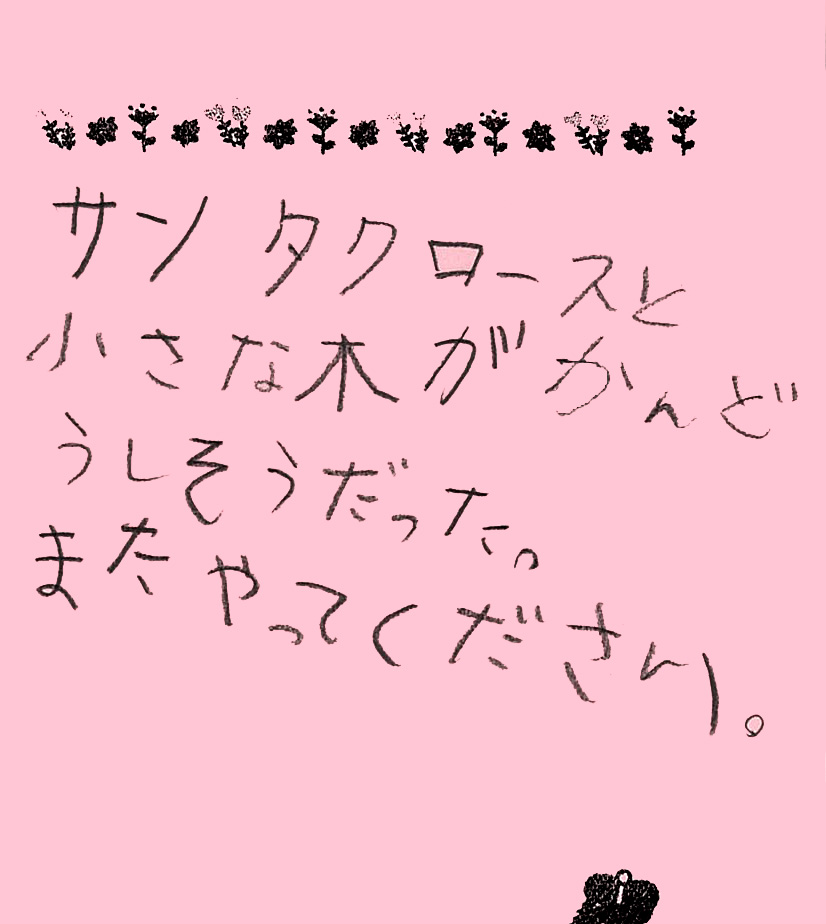 サンタクロースと
小さな木がかんど
うしそうだった。
またやってください。